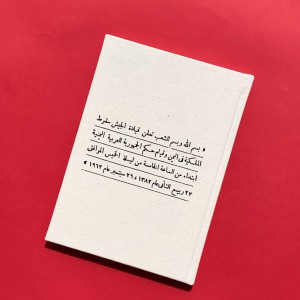 « بسم الله وبسم الشعب تعلن قيادة الجيش سقوط
الملكية في اليمن وقيام حكم الجمهورية العربية اليمنية
ابتداء من الساعة الخامسة من ليلة الخميس الموافق
٢٧ ربيع الثاني عام ١٣٨٢ ، ٢٦ سبتمبر عام ١٩٦٢ »